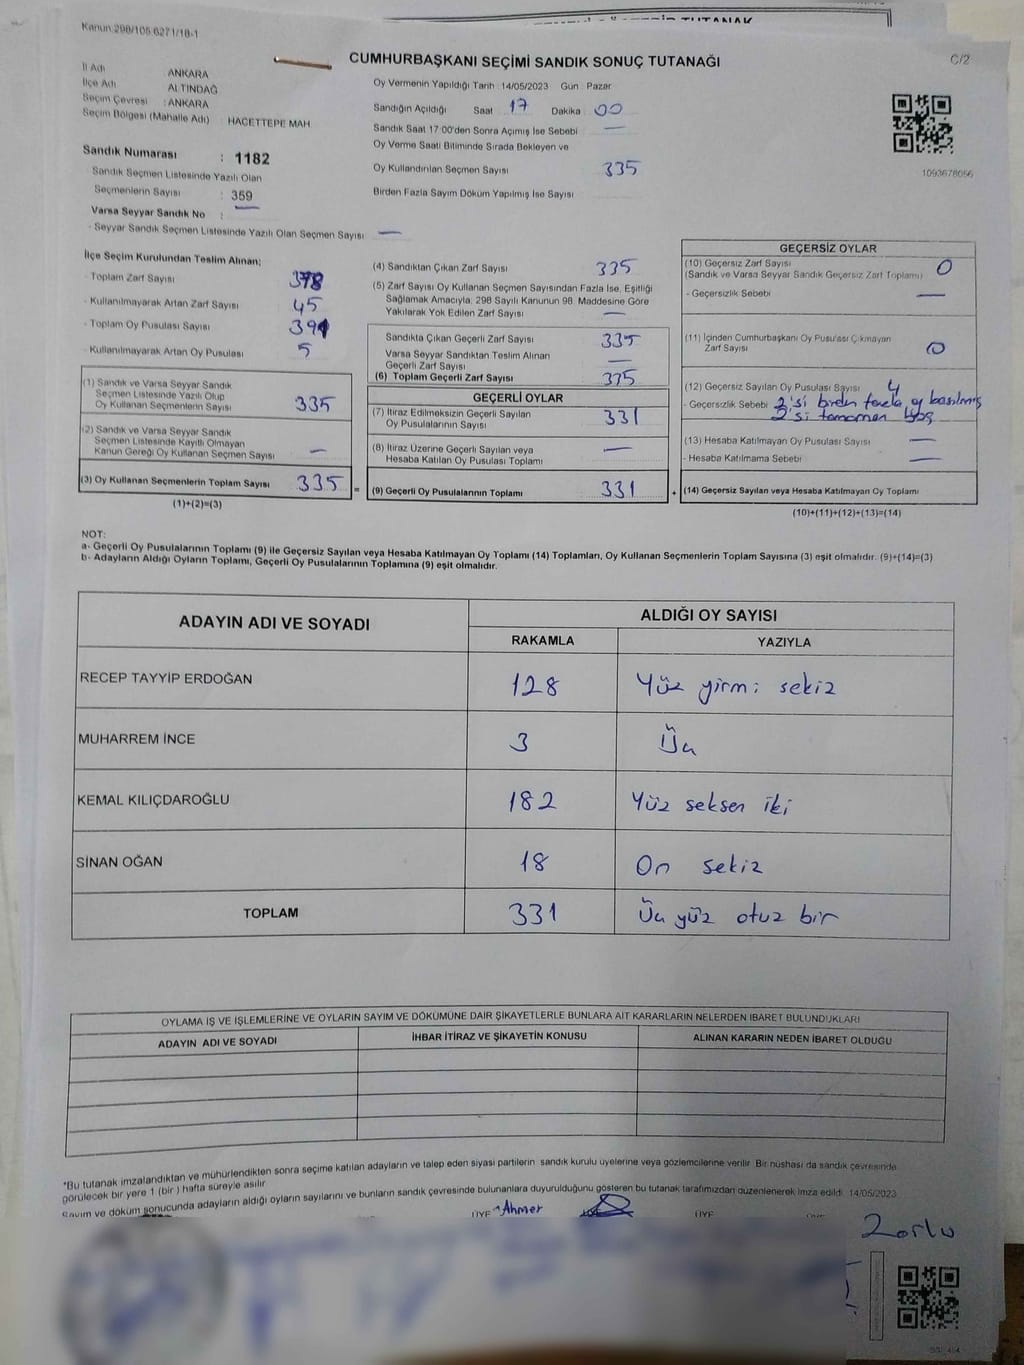 TUTANAK
Kanun 298/105 6271/18-1
C/2
CUMHURBAŞKANI SEÇİMİ SANDIK SONUÇ TUTANAĞI
İl Adı ANKARA
İlçe Adı ALTINDAĞ
Seçim Çevresi : ANKARA
Seçim Bölgesi (Mahalle Adı) HACETTEPE MAH
Sandık Numarası : 1182
Sandık Seçmen Listesinde Yazılı Olan
Seçmenlerin Sayısı : 359
Varsa Seyyar Sandık No : —
- Seyyar Sandık Seçmen Listesinde Yazılı Olan Seçmen Sayısı —
Oy Vermenin Yapıldığı Tarih : 14/05/2023 Gün : Pazar
Sandığın Açıldığı Saat 17 Dakika 00
Sandık Saat 17 00'den Sonra Açımış İse Sebebi —
Oy Verme Saati Bitiminde Sırada Bekleyen ve
Oy Kullandırılan Seçmen Sayısı 335
Birden Fazla Sayım Döküm Yapılmış İse Sayısı
1093678056
İlçe Seçim Kurulundan Teslim Alınan;
- Toplam Zarf Sayısı 378
- Kullanılmayarak Artan Zarf Sayısı 45
- Toplam Oy Pusulası Sayısı 391
- Kullanılmayarak Artan Oy Pusulası 5
(1) Sandık ve Varsa Seyyar Sandık
Seçmen Listesinde Yazılı Olup
Oy Kullanan Seçmenlerin Sayısı 335
(2) Sandık ve Varsa Seyyar Sandık
Seçmen Listesinde Kayıtlı Olmayan
Kanun Gereği Oy Kullanan Seçmen Sayısı —
(3) Oy Kullanan Seçmenlerin Toplam Sayısı 335 =
(1)+(2)=(3)
(4) Sandıktan Çıkan Zarf Sayısı 335
(5) Zarf Sayısı Oy Kullanan Seçmen Sayısından Fazla İse, Eşitliği
Sağlamak Amacıyla, 298 Sayılı Kanunun 98. Maddesine Göre
Yakılarak Yok Edilen Zarf Sayısı —
Sandıkta Çıkan Geçerli Zarf Sayısı 335
Varsa Seyyar Sandıktan Teslim Alınan
Geçerli Zarf Sayısı —
(6) Toplam Geçerli Zarf Sayısı 335
GEÇERLİ OYLAR
(7) İtiraz Edilmeksizin Geçerli Sayılan
Oy Pusulalarının Sayısı 331
(8) İtiraz Üzerine Geçerli Sayılan veya
Hesaba Katılan Oy Pusulası Toplamı —
(9) Geçerli Oy Pusulalarının Toplamı 331 +
GEÇERSİZ OYLAR
(10) Geçersiz Zarf Sayısı
(Sandık ve Varsa Seyyar Sandık Geçersiz Zarf Toplamı) 0
- Geçersizlik Sebebi —
(11) İçinden Cumhurbaşkanı Oy Pusulası Çıkmayan
Zarf Sayısı 0
(12) Geçersiz Sayılan Oy Pusulası Sayısı 4
- Geçersizlik Sebebi 2'si birden fazla oy basılmış
2'si tamamen boş
(13) Hesaba Katılmayan Oy Pusulası Sayısı —
- Hesaba Katılmama Sebebi —
(14) Geçersiz Sayılan veya Hesaba Katılmayan Oy Toplamı
(10)+(11)+(12)+(13)=(14)
NOT:
a- Geçerli Oy Pusulalarının Toplamı (9) ile Geçersiz Sayılan veya Hesaba Katılmayan Oy Toplamı (14) Toplamları, Oy Kullanan Seçmenlerin Toplam Sayısına (3) eşit olmalıdır. (9)+(14)=(3)
b- Adayların Aldığı Oyların Toplamı, Geçerli Oy Pusulalarının Toplamına (9) eşit olmalıdır.
ADAYIN ADI VE SOYADI ALDIĞI OY SAYISI
RAKAMLA YAZIYLA
RECEP TAYYİP ERDOĞAN 128 Yüz yirmi sekiz
MUHARREM İNCE 3 Üç
KEMAL KILIÇDAROĞLU 182 Yüz seksen iki
SİNAN OĞAN 18 On sekiz
TOPLAM 331 Üç yüz otuz bir
OYLAMA İŞ VE İŞLEMLERİNE VE OYLARIN SAYIM VE DÖKÜMÜNE DAİR ŞİKAYETLERLE BUNLARA AİT KARARLARIN NELERDEN İBARET BULUNDUKLARI
ADAYIN ADI VE SOYADI İHBAR İTİRAZ VE ŞİKAYETİN KONUSU ALINAN KARARIN NEDEN İBARET OLDUĞU
*Bu tutanak imzalandıktan ve mühürlendikten sonra seçime katılan adayların ve talep eden siyasi partilerin sandık kurulu üyelerine veya gözlemcilerine verilir. Bir nüshası da sandık çevresinde
görülecek bir yere 1 (bir) hafta süreyle asılır
Sayım ve döküm sonucunda adayların aldığı oyların sayılarını ve bunların sandık çevresinde bulunanlara duyurulduğunu gösteren bu tutanak tarafımızdan düzenlenerek imza edildi. 14/05/2023
ÜYE Ahmer ÜYE
Zorlu